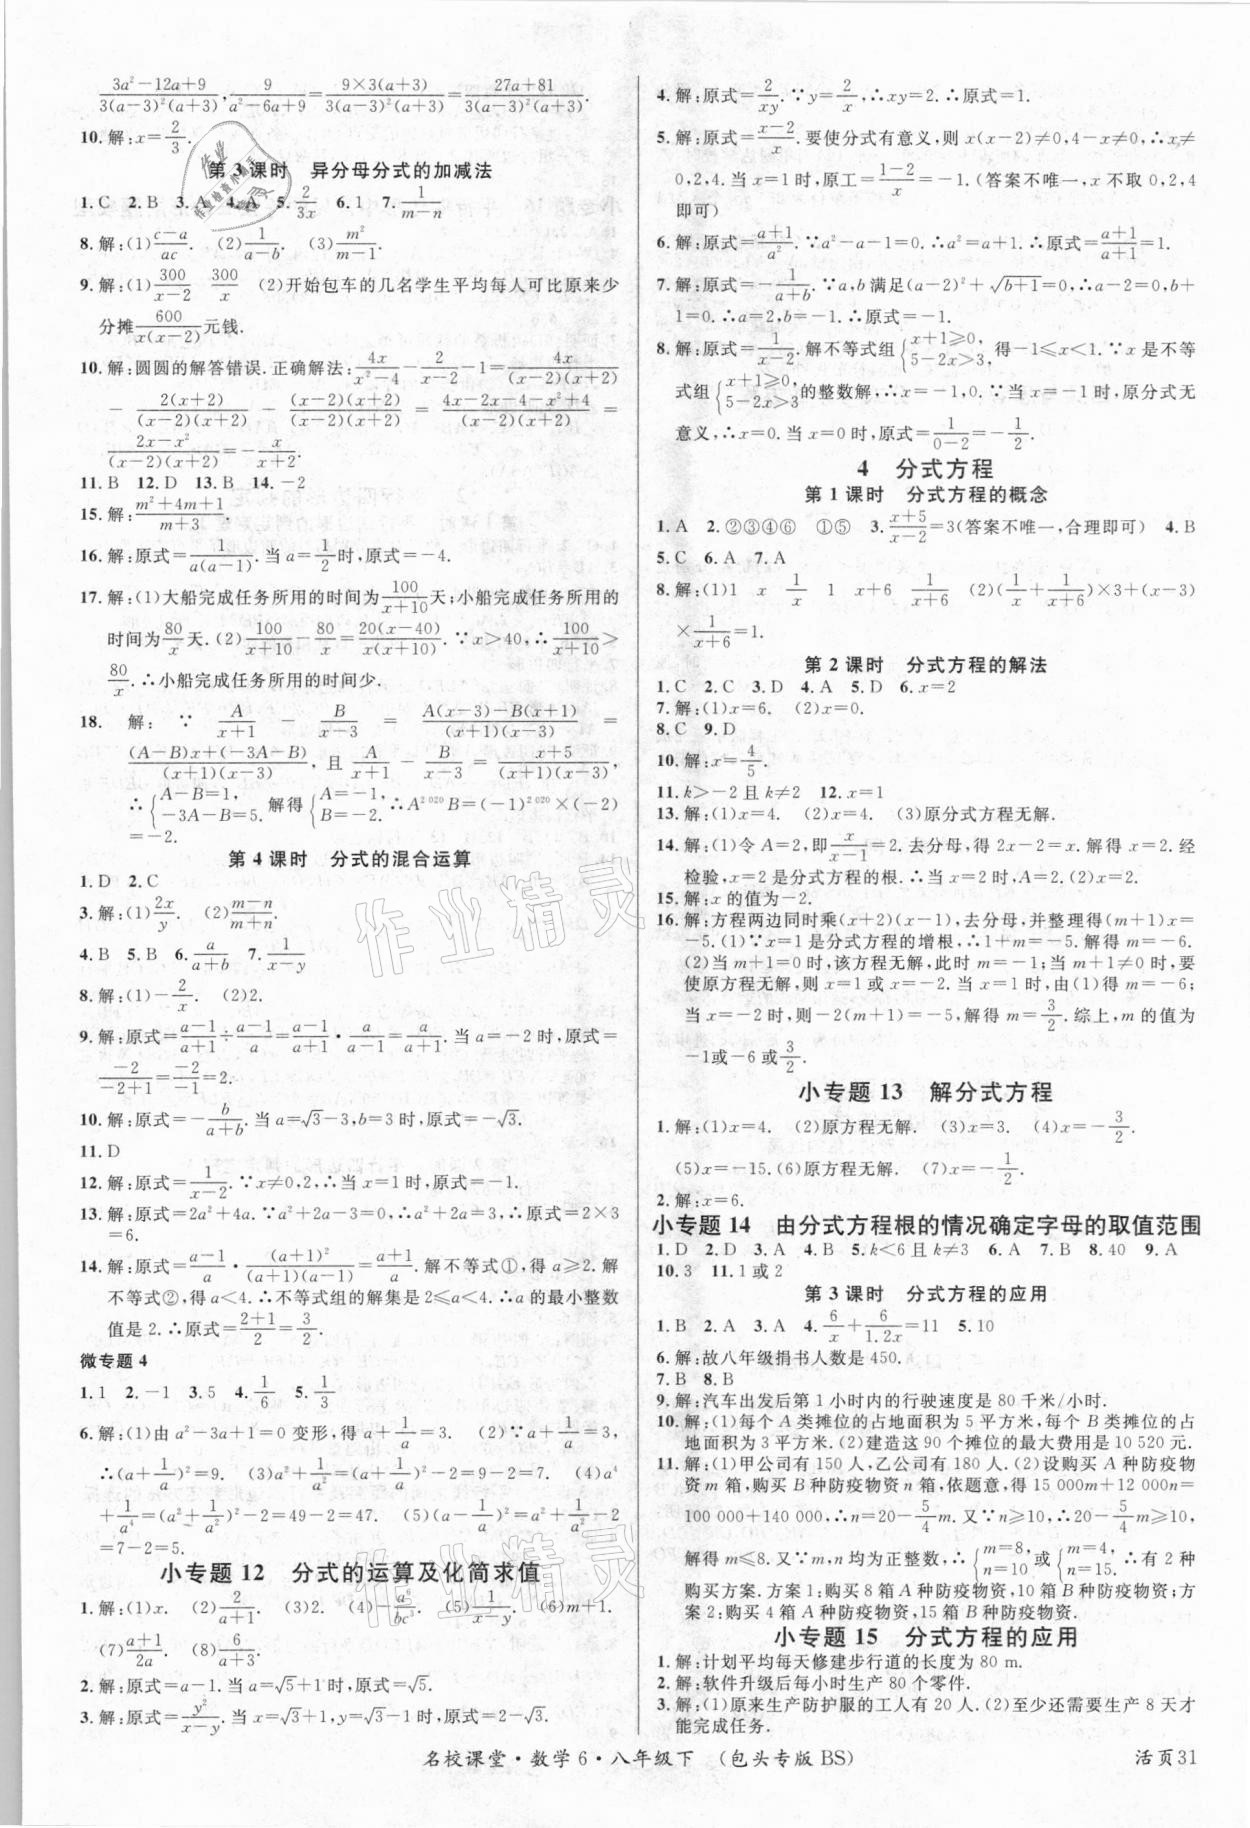 (3a²−12a+9)/(3(a−3)²(a+3)), 9/(a²−6a+9)=(9×3(a+3))/(3(a−3)²(a+3))=(27a+81)/(3(a−3)²(a+3)).
10.解:x=2/3.
第3课时 异分母分式的加减法
1.C 2.B 3.A 4.A 5.2/(3x) 6.1 7.1/(m−n)
8.解:(1)(c−a)/(ac). (2)1/(a−b). (3)m²/(m−1).
9.解:(1)300/(x−2) 300/x (2)开始包车的几名学生平均每人可比原来少
分摊600/(x(x−2))元钱.
10.解:圆圆的解答错误.正确解法:4x/(x²−4)−2/(x−2)−1=4x/((x−2)(x+2))
−2(x+2)/((x−2)(x+2))−(x−2)(x+2)/((x−2)(x+2))=(4x−2x−4−x²+4)/((x−2)(x+2))=
(2x−x²)/((x−2)(x+2))=−x/(x+2).
11.B 12.D 13.B 14.−2
15.解:(m²+4m+1)/(m+3).
16.解:原式=1/(a(a−1)).当a=1/2时,原式=−4.
17.解:(1)大船完成任务所用的时间为100/(x+10)天;小船完成任务所用的
时间为80/x天.(2)100/(x+10)−80/x=20(x−40)/(x(x+10)).∵x>40,∴100/(x+10)>
80/x.∴小船完成任务所用的时间少.
18. 解:∵A/(x+1)−B/(x−3)=(A(x−3)−B(x+1))/((x+1)(x−3))=
((A−B)x+(−3A−B))/((x+1)(x−3)),且A/(x+1)−B/(x−3)=(x+5)/((x+1)(x−3)),
∴{A−B=1, −3A−B=5. 解得{A=−1, B=−2. ∴A²⁰²⁰B=(−1)²⁰²⁰×(−2)
=−2.
第4课时 分式的混合运算
1.D 2.C
3.解:(1)2x/y. (2)(m−n)/(m+n).
4.B 5.B 6.a/(a+b) 7.1/(x−y)
8.解:(1)−2/x. (2)2.
9.解:原式=(a−1)/(a+1)÷(a−1)/a=(a−1)/(a+1)·a/(a−1)=a/(a+1).当a=−2时,原式=
−2/(−2+1)=−2/−1=2.
10.解:原式=−b/(a+b).当a=√3−3,b=3时,原式=−√3.
11.D
12.解:原式=1/(x−2).∵x≠0,2,∴当x=1时,原式=−1.
13.解:原式=2a²+4a.∵a²+2a−3=0,∴a²+2a=3.∴原式=2×3
=6.
14.解:原式=(a−1)/a·(a+1)²/((a+1)(a−1))=(a+1)/a.解不等式①,得a≥2.解
不等式②,得a<4.∴不等式组的解集是2≤a<4.∴a的最小整数
值是2.∴原式=(2+1)/2=3/2.
微专题4
1.1 2.−1 3.5 4.1/6 5.1/3
6.解:(1)由a²−3a+1=0变形,得a+1/a=3. (2)∵a+1/a=3,
∴(a+1/a)²=9. (3)a²+1/a²=(a+1/a)²−2=9−2=7. (4)a⁴
+1/a⁴=(a²+1/a²)²−2=49−2=47. (5)(a−1/a)²=a²+1/a²−2
=7−2=5.
小专题12 分式的运算及化简求值
1.解:(1)x. (2)2/(a+1). (3)2. (4)−a⁶/(bc³). (5)1/(x−y). (6)m+1.
(7)(a+1)/(2a). (8)6/(a+3).
2.解:原式=a−1.当a=√5+1时,原式=√5.
3.解:原式=y²/(x−y).当x=√3+1,y=√3−1时,原式=2−√3.
4.解:原式=2/(xy).∵y=2/x,∴xy=2.∴原式=1.
5.解:原式=(x−2)/x.要使分式有意义,则x(x−2)≠0,4−x≠0,∴x≠
0,2,4.当x=1时,原工=(1−2)/x=−1.(答案不唯一,x不取0,2,4
即可)
6.解:原式=(a+1)/a².∵a²−a−1=0.∴a²=a+1.∴原式=(a+1)/(a+1)=1.
7.解:原式=−1/(a+b).∵a,b满足(a−2)²+√(b+1)=0,∴a−2=0,b+
1=0.∴a=2,b=−1.∴原式=−1.
8.解:原式=1/(x−2).解不等式组{x+1≥0, 5−2x>3, 得−1≤x<1.∵x是不等
式组{x+1≥0, 5−2x>3的整数解,∴x=−1,0.∵当x=−1时,原分式无
意义,∴x=0.当x=0时,原式=1/(0−2)=−1/2.
4 分式方程
第1课时 分式方程的概念
1.A 2.②③④⑥ ①⑤ 3.(x+5)/(x−2)=3(答案不唯一,合理即可) 4.B
5.C 6.A 7.A
8.解:(1)1 x 1/x 1 x+6 1/(x+6) (2)(1/x+1/(x+6))×3+(x−3)
×1/(x+6)=1.
第2课时 分式方程的解法
1.C 2.C 3.D 4.A 5.D 6.x=2
7.解:(1)x=6. (2)x=0.
8.C 9.D
10.解:x=4/5.
11.k>−2且k≠2 12.x=1
13.解:(1)x=4. (2)x=4. (3)原分式方程无解.
14.解:(1)令A=2,即x/(x−1)=2.去分母,得2x−2=x.解得x=2.经
检验,x=2是分式方程的根.∴当x=2时,A=2.(2)略.
15.解:x的值为−2.
16.解:方程两边同时乘(x+2)(x−1),去分母,并整理得(m+1)x=
−5.(1)∵x=1是分式方程的增根,∴1+m=−5.解得m=−6.
(2)当m+1=0时,该方程无解,此时m=−1;当m+1≠0时,要
使原方程无解,则x=1或x=−2.当x=1时,由(1)得m=−6;
当x=−2时,则−2(m+1)=−5,解得m=3/2.综上,m的值为
−1或−6或3/2.
小专题13 解分式方程
1.解:(1)x=4. (2)原方程无解. (3)x=3. (4)x=−3/2.
(5)x=−15.(6)原方程无解. (7)x=−1/2.
2.解:x=6.
小专题14 由分式方程根的情况确定字母的取值范围
1.D 2.D 3.A 4.B 5.k<6且k≠3 6.A 7.B 8.40 9.A
10.3 11.1或2
第3课时 分式方程的应用
1.B 2.A 3.A 4.6/x+6/(1.2x)=11 5.10
6.解:故八年级捐书人数是450.
7.B 8.B
9.解:汽车出发后第1小时内的行驶速度是80千米/小时.
10.解:(1)每个A类摊位的占地面积为5平方米,每个B类摊位的占
地面积为3平方米.(2)建造这90个摊位的最大费用是10 520元.
11.解:(1)甲公司有150人,乙公司有180人.(2)设购买A种防疫物
资m箱,购买B种防疫物资n箱,依题意,得15 000m+12 000n=
100 000+140 000,∴n=20−5/4m.又∵n≥10,∴20−5/4m≥10,
解得m≤8.又∵m,n均为正整数,∴{m=8, n=10或{m=4, n=15. ∴有2种
购买方案.方案1:购买8箱A种防疫物资,10箱B种防疫物资;方
案2:购买4箱A种防疫物资,15箱B种防疫物资.
小专题15 分式方程的应用
1.解:计划平均每天修建步行道的长度为80 m.
2.解:软件升级后每小时生产80个零件.
3.解:(1)原来生产防护服的工人有20人.(2)至少还需要生产8天才
能完成任务.
名校课堂·数学6·八年级下 (包头专版BS) 活页31
作业精灵
作业精灵